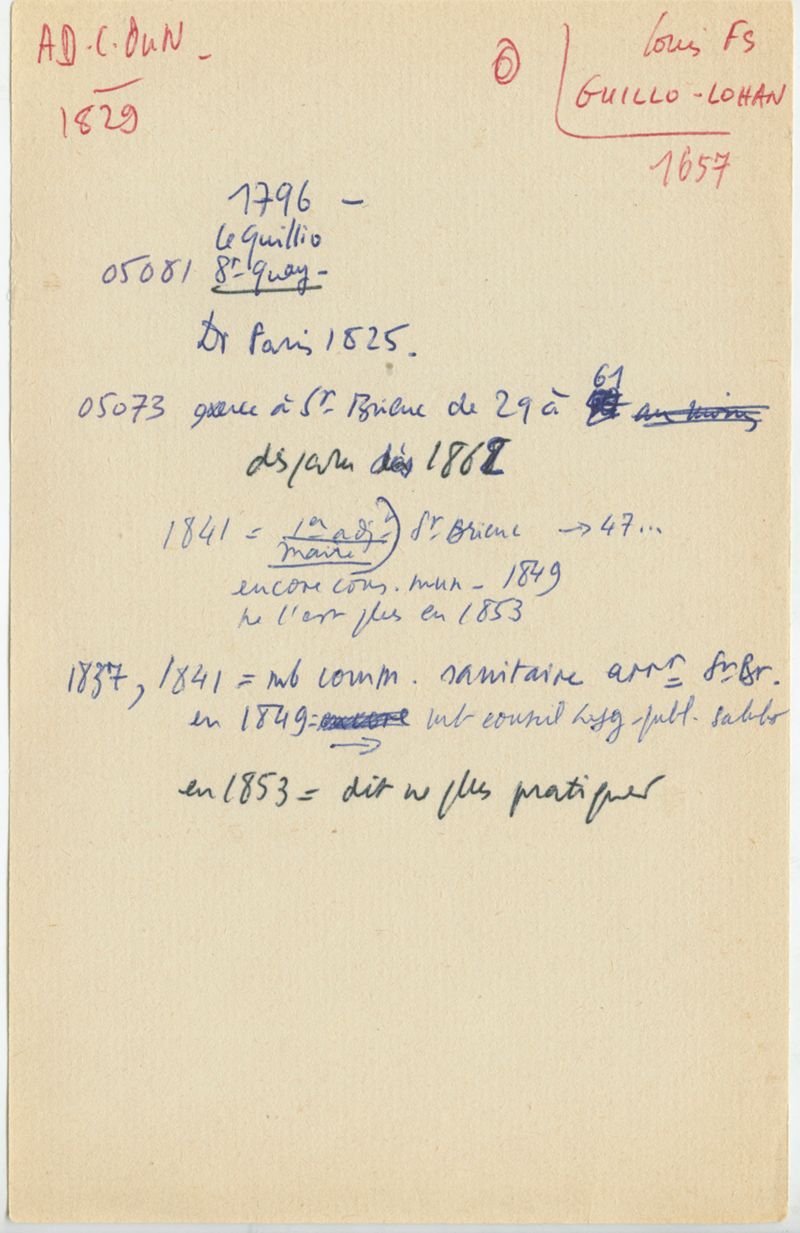 AD.C.DuN -
1829
Louis Fs
GUILLO-LOHAN
1657
1796 -
le Guillio
05081 St-Quay-
Dr Paris 1825.
61
05073 exerce à St- Brieuc de 29 à au moins
disparu dès 1862
1841 = 1er adjt St Brieuc → 47...
maire
encore cons. mun - 1849
ne l'est plus en 1853
1837, 1841 = mb comm. sanitaire arrt St-Br.
en 1849= encore mb conseil hyg-publ.
en 1853 = dit ne plus pratiquer